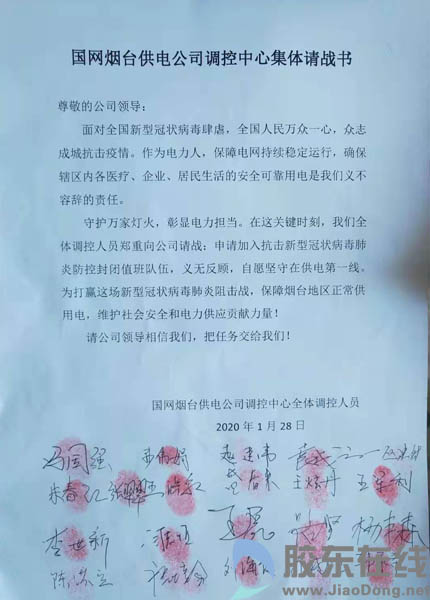 国网烟台供电公司调控中心集体请战书
尊敬的公司领导：
面对全国新型冠状病毒肆虐，全国人民万众一心，众志
成城抗击疫情。作为电力人，保障电网持续稳定运行，确保
辖区内各医疗、企业、居民生活的安全可靠用电是我们义不
容辞的责任。
守护万家灯火，彰显电力担当。在这关键时刻，我们全
体调控人员郑重向公司请战：申请加入抗击新型冠状病毒肺
炎防控封闭值班队伍，义无反顾，自愿坚守在供电第一线。
为打赢这场新型冠状病毒肺炎阻击战，保障烟台地区正常供
用电，维护社会安全和电力供应贡献力量！
请公司领导相信我们，把任务交给我们！
国网烟台供电公司调控中心全体调控人员
2020 年 1 月 28 日
冯国强
李世新
胶东在线
www.JiaoDong.net